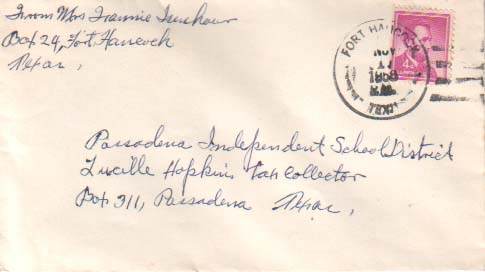 From Mrs Frannie Isenhour
Box 24, Fort Hancock
Texas,
FORT HANCOCK
NOV
17
1958
TEX.
4¢
Passadena Independent School District
Lucille Hopkins tax collector
Box 311, Passadena Texas,